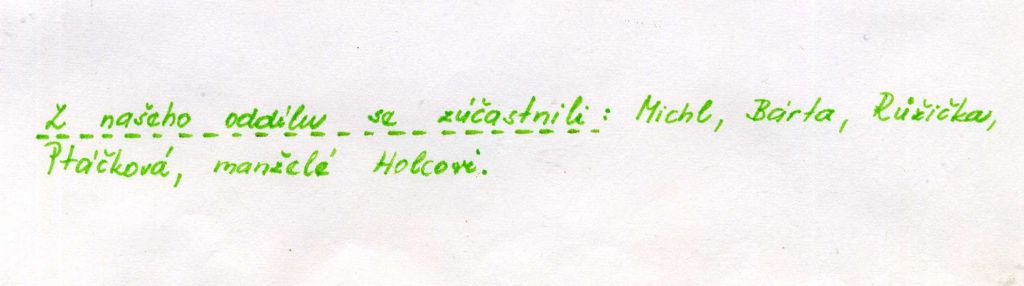 Z našeho oddílu se zúčastnili: Michl, Bárta, Růžička,
Ptáčková, manželé Holcovi.